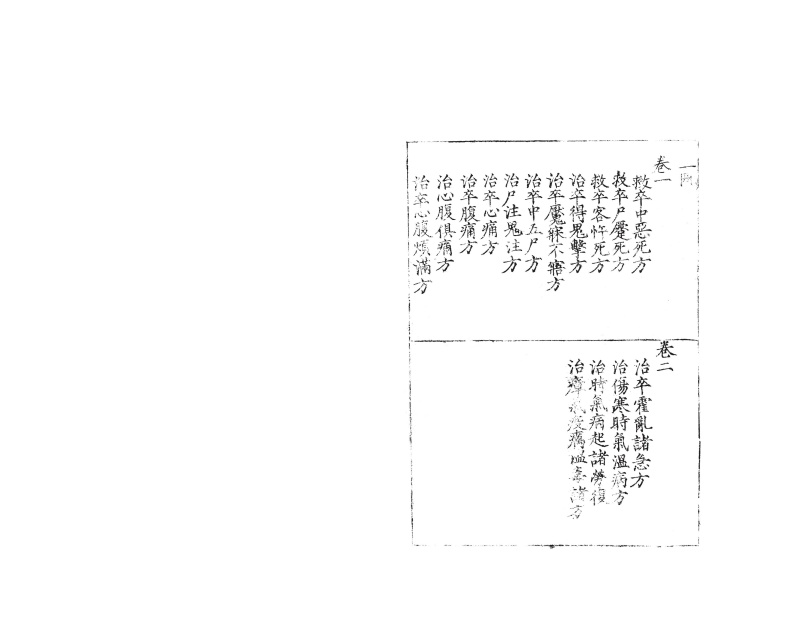 卷一
救卒中惡死方
救卒尸蹷死方
救卒客忤死方
治卒得鬼擊方
治卒魘寐不寤方
治卒中五尸方
治尸注鬼注方
治卒心痛方
治卒腹痛方
治心腹俱痛方
治卒心腹煩滿方
卷二
治卒霍亂諸急方
治傷寒時氣溫病方
治時氣病起諸勞復
治瘴氣疫癘溫毒諸方